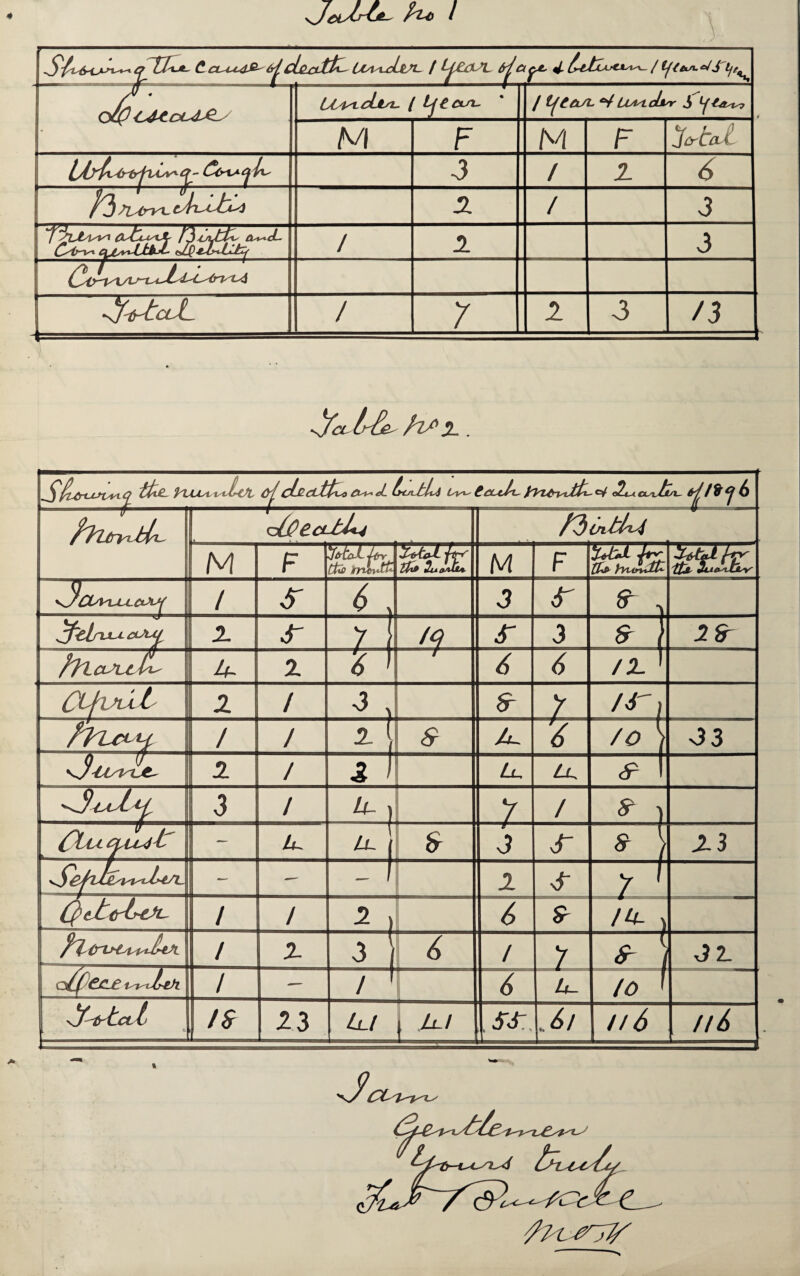 Table No 1
Showing the Cause of death under 1 year of age & between 1 year & 5 years
Disease | Under 1 year | 1 year & under 5 years
M | F | M | F | Total
Whooping-Cough | | 3 | 1 | 2 | 6
Bronchitis | | 2 | 1 | | 3
Premature Birth and Congenital Debility | 1 | 2 | | | 3
Convulsions
Total | 1 | 7 | 2 | 3 | 13
Table No 2.
Showing the number of deaths and births in each month & Quarter of 1896
Month | Deaths | Births
M | F | Total for the month | Total for the Quarter | M | F | Total for the month | Total for the Quarter
January | 1 | 5 | 6 | | 3 | 5 | 8
February | 2 | 5 | 7 | 19 | 5 | 3 | 8 | 28
March | 4 | 2 | 6 | | 6 | 6 | 12
April | 2 | 1 | 3 | | 8 | 7 | 15
May | 1 | 1 | 2 | 8 | 4 | 6 | 10 | 33
June | 2 | 1 | 3 | | 4 | 4 | 8
July | 3 | 1 | 4 | | 7 | 1 | 8
August | - | 4 | 4 | 8 | 3 | 5 | 8 | 23
September | - | - | - | | 2 | 5 | 7
October | 1 | 1 | 2 | | 6 | 8 | 14
November | 1 | 2 | 3 | 6 | 1 | 7 | 8 | 32
December | 1 | - | 1 | | 6 | 4 | 10
Total | 18 | 23 | 41 | 41 | 55 | 61 | 116 | 116
I am
Gentlemen
Yours truly